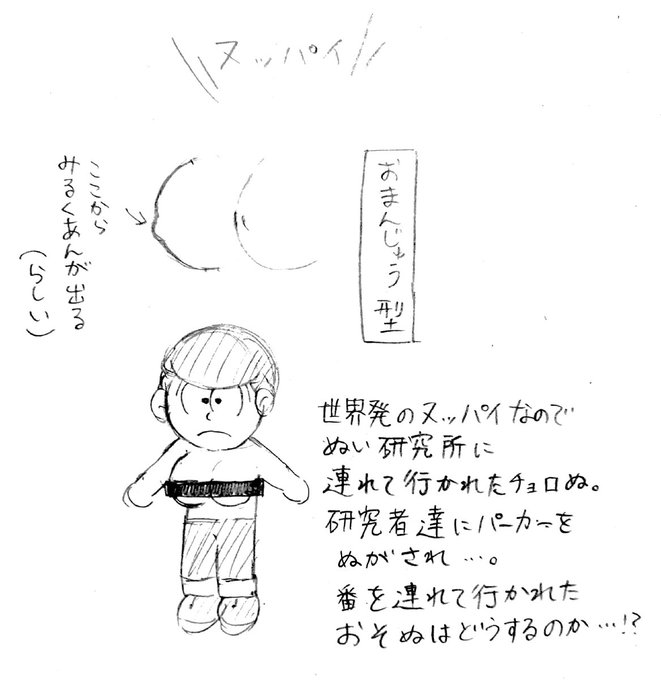 ヌッパイ
おまんじゅう型
ここから
みるくあんが出る
(らしい)
世界発のヌッパイなので
ぬい研究所に
連れて行かれたチョロぬ。
研究者達にパーカーを
ぬがされ…。
番を連れて行かれた
おそぬはどうするのか…!?